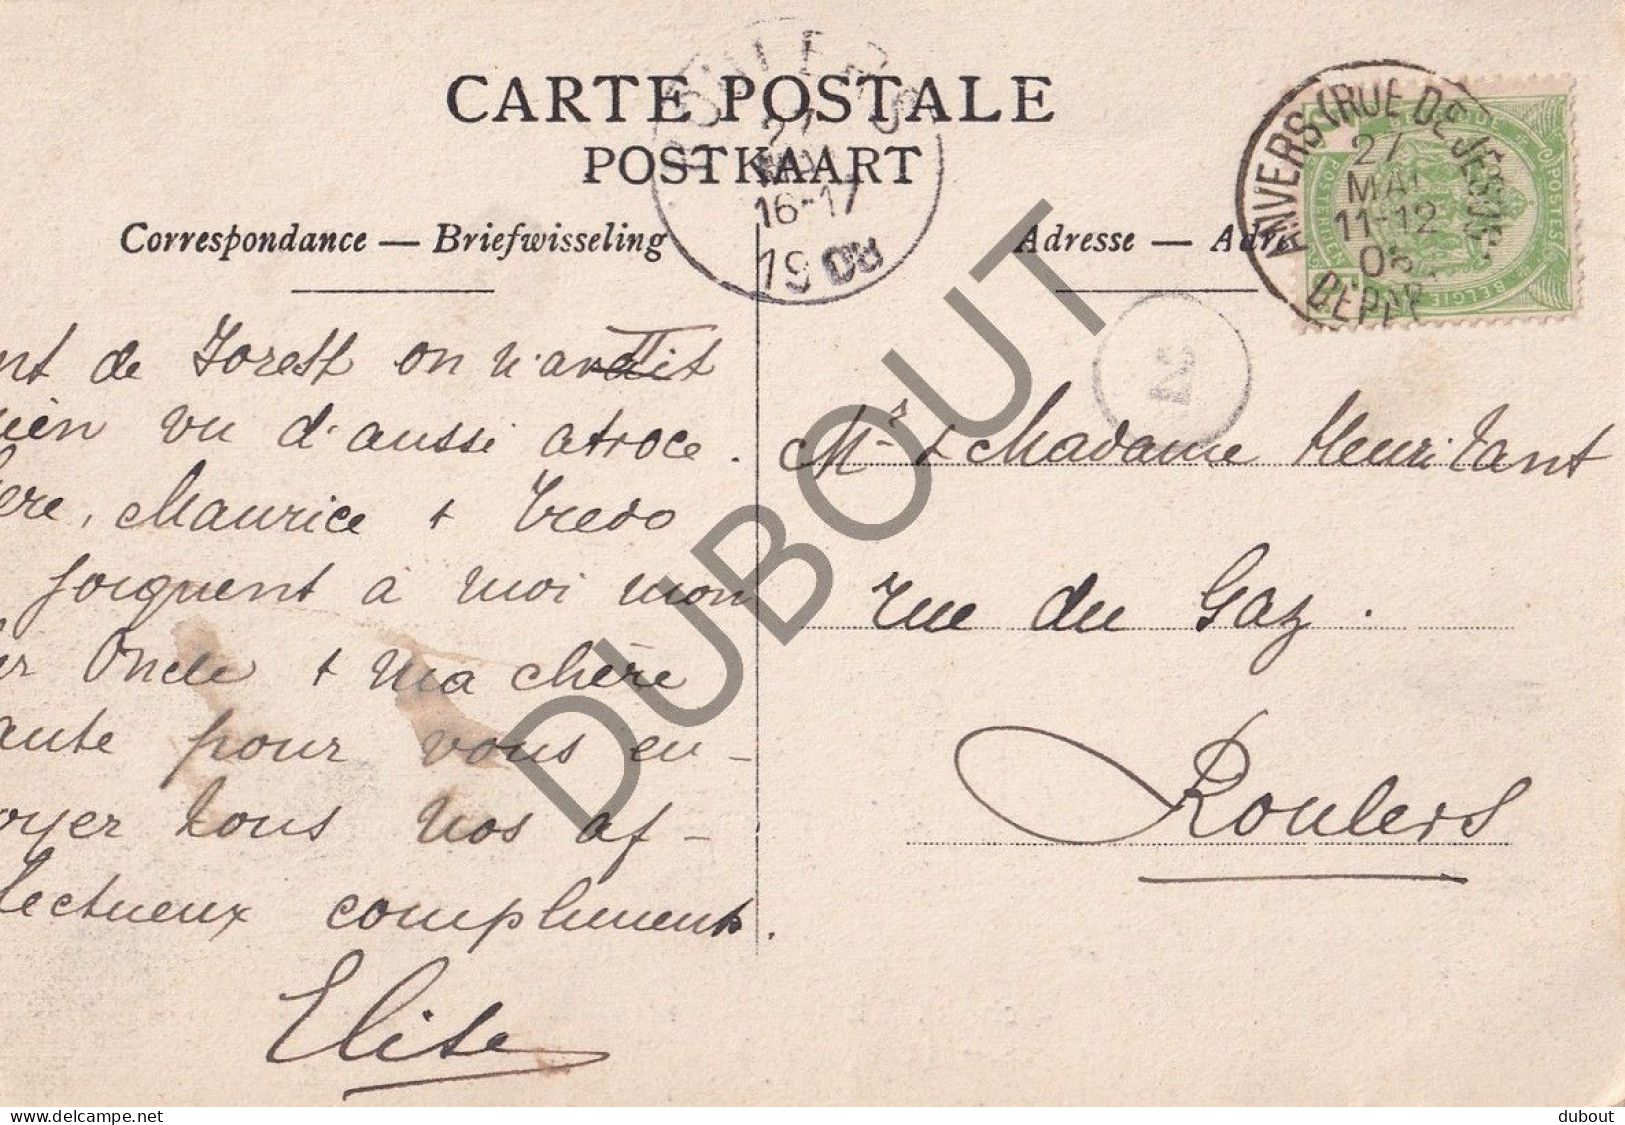 CARTE POSTALE
POSTKAART
Correspondance — Briefwisseling
Adresse — Adr
ROULERS
27
16-17
1908
ANVERS (RUE DE JÉSUS)
27
MAI
11-12
08
DEPA
POSTES
BELGIE
nt de Forest on n'avait
ien vu d'aussi atroce.
ère, Maurice +
joignent à moi mon
er Oncle + ma chère
ante pour vous en-
oyer tous nos af-
fectueux compliments.
Elise
Mr & Madame Henri Tant
rue du Gaz.
Roulers
DUBOUT
dubout